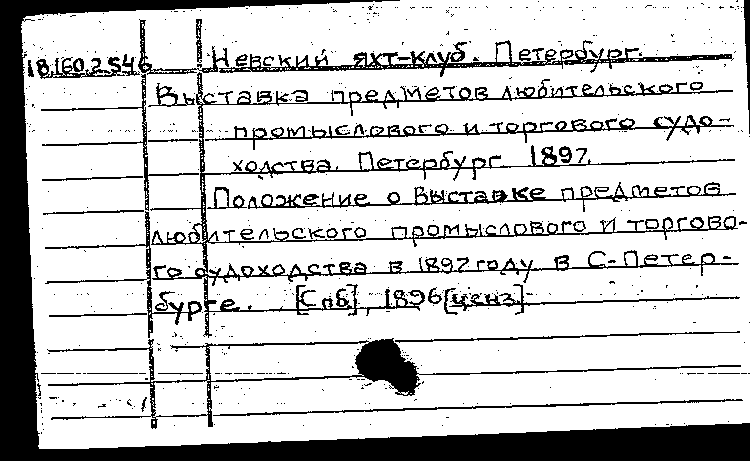 18.160.2.546 Невский яхт-клуб. Петербург.
Выставка предметов любительского
промыслового и торгового судо-
ходства. Петербург 1897.
Положение о Выставке предметов
любительского промыслового и торгово-
го судоходства в 1897 году в С-Петер-
бурге. [Спб], 1896 [ценз.]